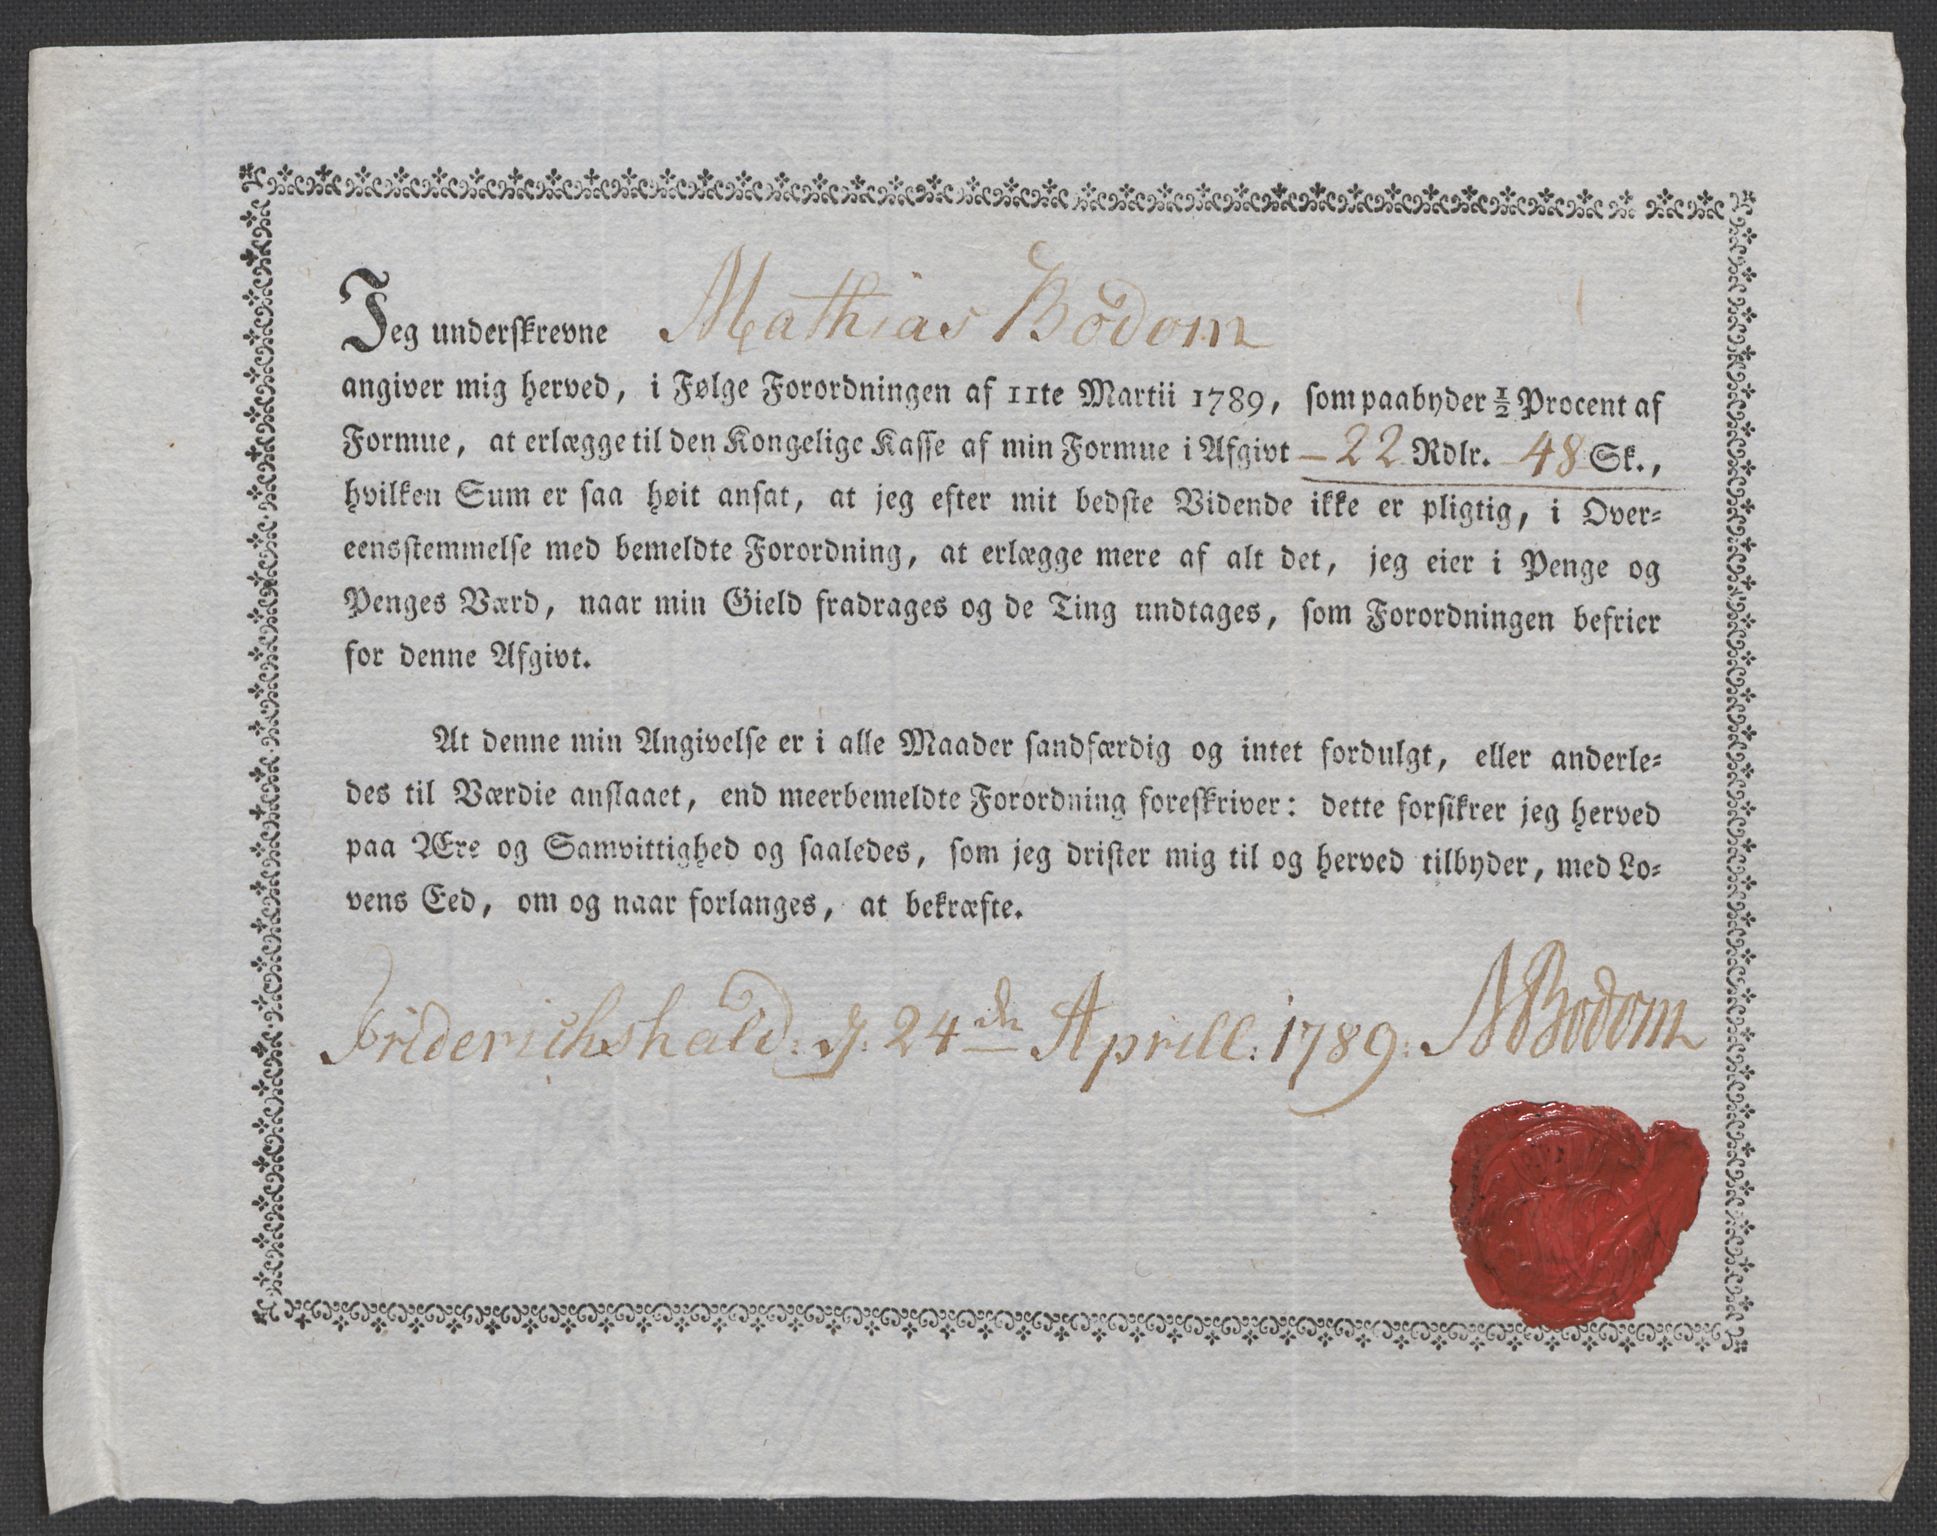 Jeg underskrevne Mathias Bodom
angiver mig herved, i Følge Forordningen af 11te Martii 1789, som paabyder ½ Procent af
Formue, at erlægge til den Kongelige Kasse af min Formue i Afgivt — 22 Rdlr. 48 Sk.,
hvilken Sum er saa høit ansat, at jeg efter mit bedste Vidende ikke er pligtig, i Over=
eensstemmelse med bemeldte Forordning, at erlægge mere af alt det, jeg eier i Penge og
Penges Værd, naar min Gield fradrages og de Ting undtages, som Forordningen befrier
for denne Afgivt.
At denne min Angivelse er i alle Maader sandfærdig og intet fordulgt, eller anderle=
des til Værdie anslaaet, end meerbemeldte Forordning foreskriver: dette forsikrer jeg herved
paa Ære og Samvittighed og saaledes, som jeg drister mig til og herved tilbyder, med Lo=
vens Eed, om og naar forlanges, at bekræfte.
Friderichshald: 24de Aprill: 1789: MBodom